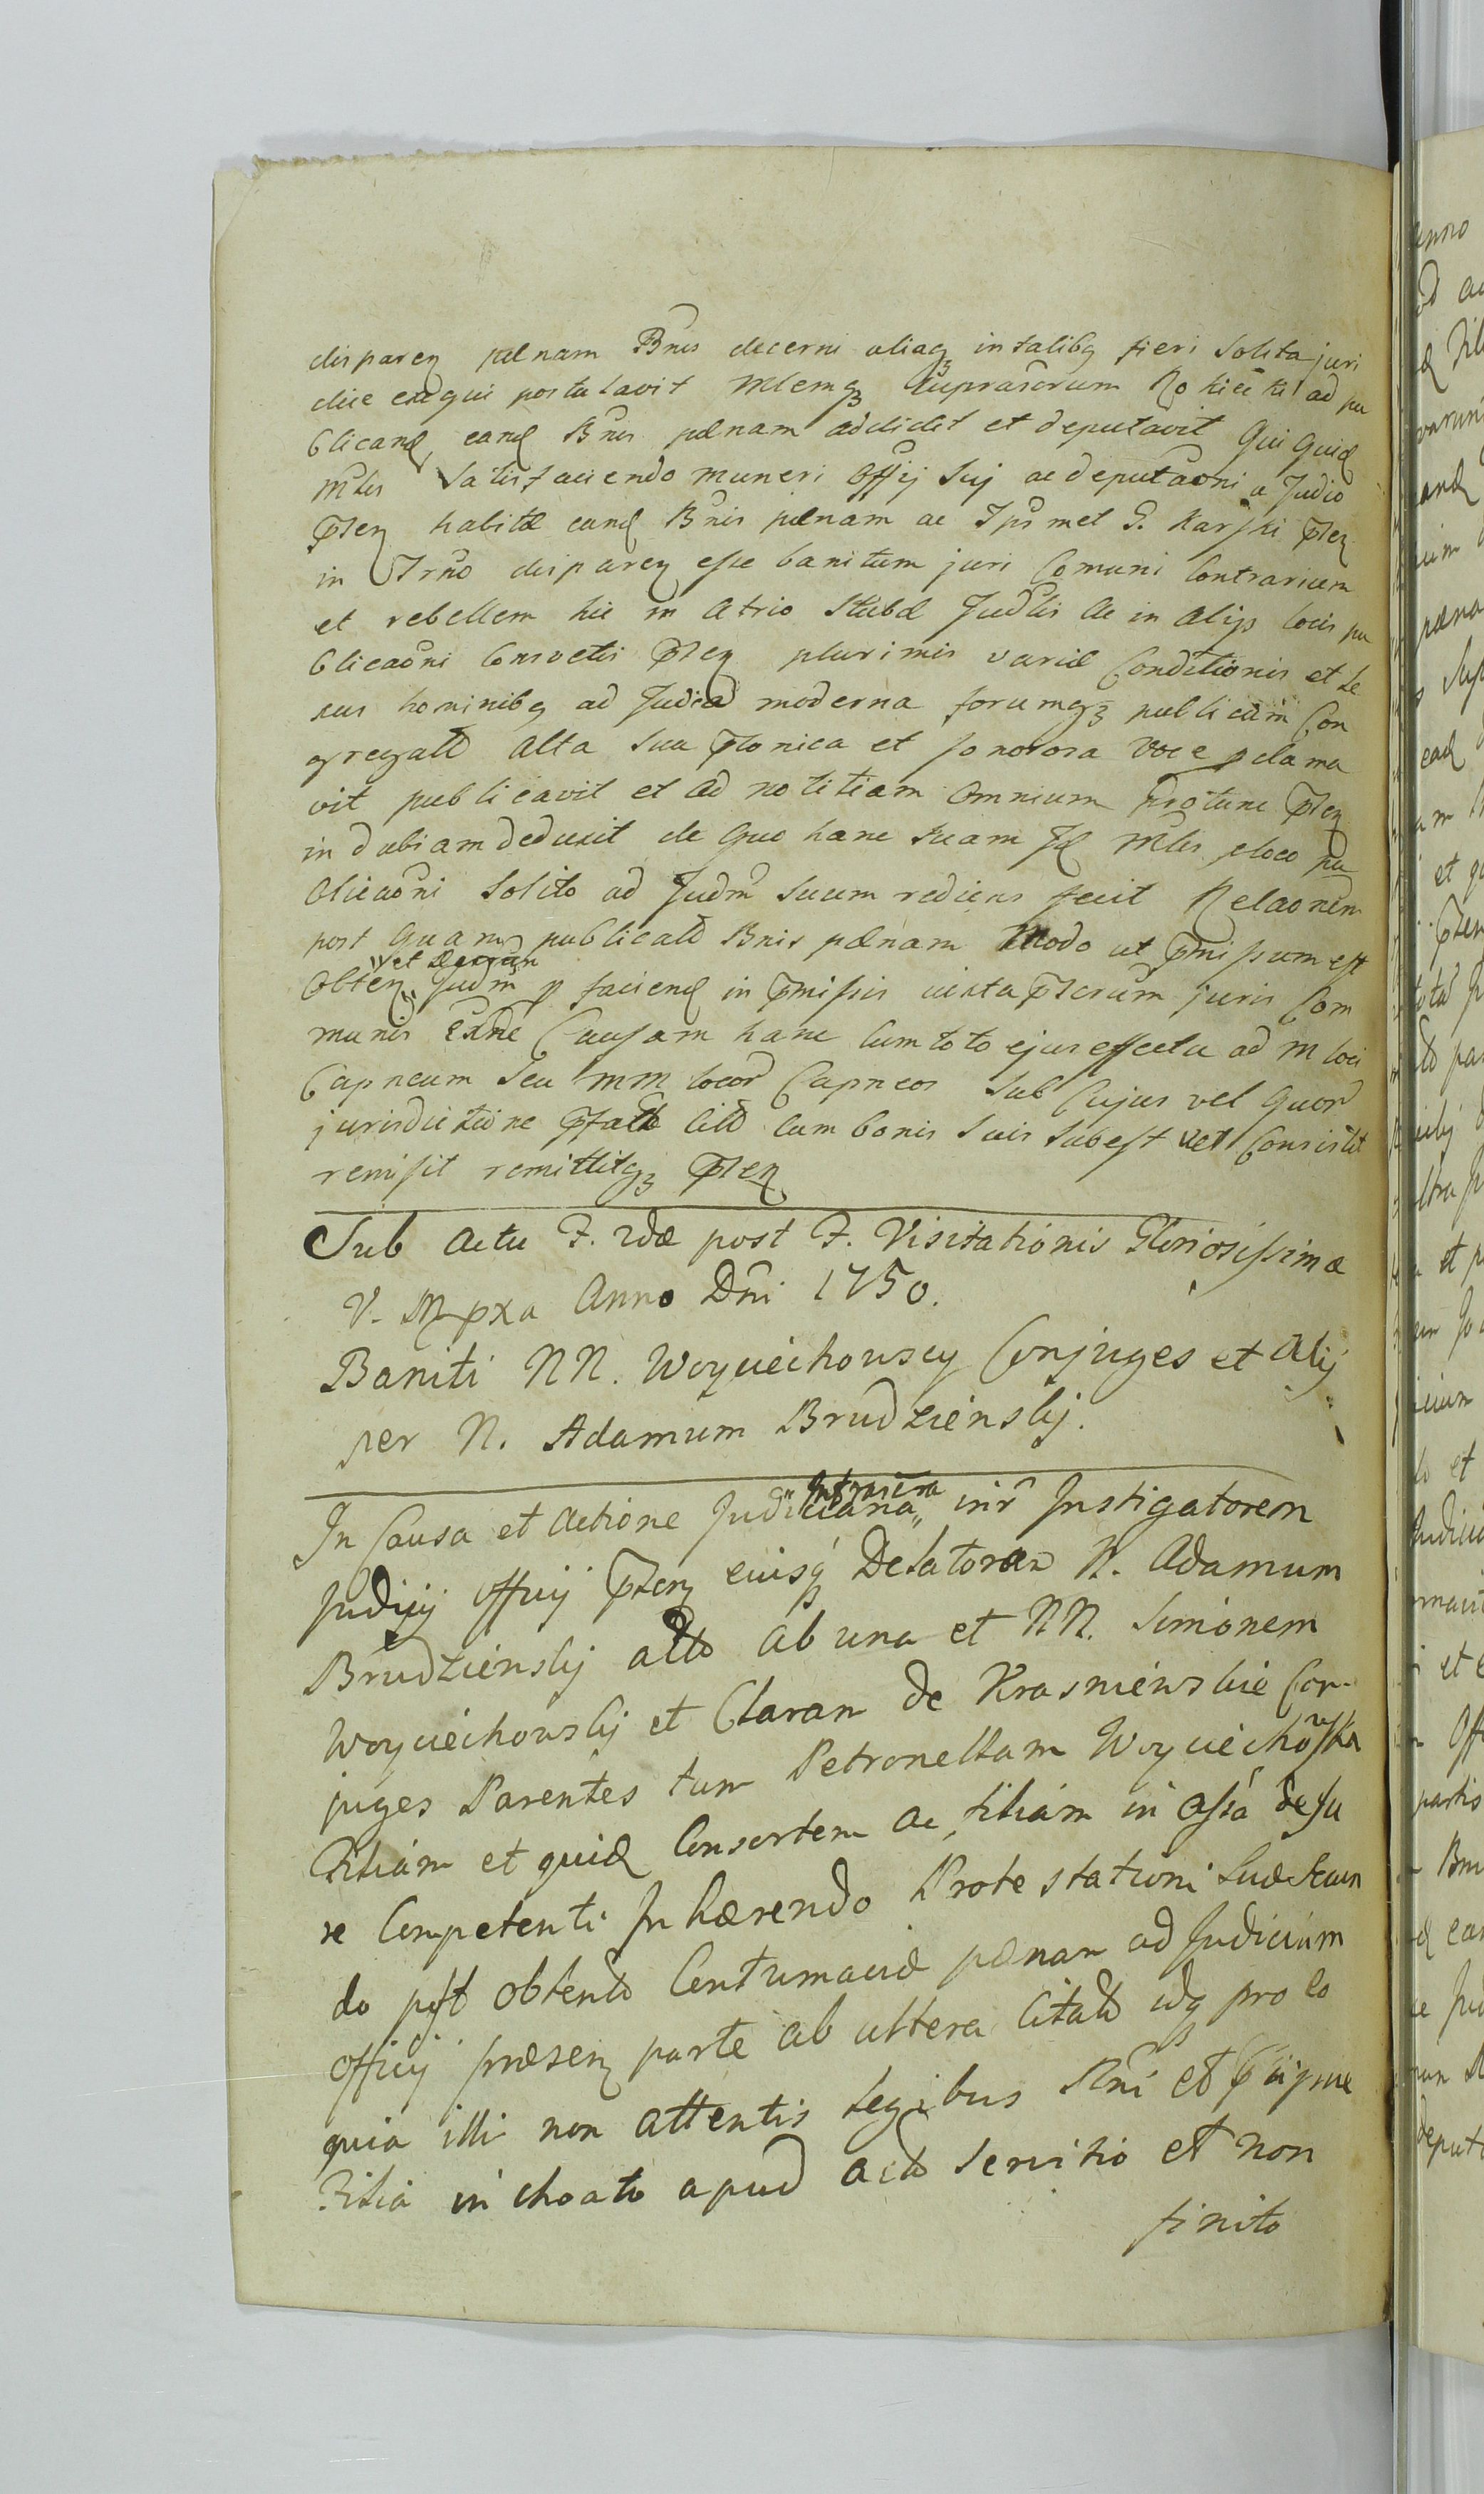 disparen pænam Bnis decerni aliaq in talibq fieri solita juri
dice exequi postulavit Mlemq suprascrum Rokicki ad pu
blicand eand Bnis pænam addidit et deputavit Qui quid
Mlis satisfaciendo muneri Offij suj ac deputaoni a Judio
pten habitæ eand Bnis pænam ac Ipsmet G. Karski pten
in Trno disparen esse banitum juri Comuni Contrarium
et rebellem hic in atrio Stubæ Judlis ac in alijs locis pu
blicaoni consvetis pten plurimis variæ Conditionis et se
xus hominibq ad Judica moderna forumq publicum Con
gregatt alta sua ptonica et sonorosa voce pclama
vit publicavit et ad notitiam omnium protunc pten
indubiam deduxit de quo hanc suam Id Mlis eloco pu
blicaoni solito ad Judm suum rediens fecit Relaonem
post quam publicatt Bnis pænam modo ut pmissum est
Obten et Judm p faciend in pmissis iuxta pscrum juris Com
munis Exne Causam hanc cum toto ejus effectu ad M loci
Capneum seu MM locor Capneos sub Cujus vel quor
jurisdictione pfatt citt cum bonis suis subest vel consistit
remisit remittitq pten
Sub actu F. 2dæ post F. Visitationis Gloriosissimæ
V. M pxa Anno Dni 1750.
Baniti NN. Woyciechowscy Conjuges et alij
per N. Adamum Brudzienskj.
In Causa et actione Judiciana infrascrta intr Instigatorem
Judicij officij pten eiusq Delatorem N. Adamum
Brudzienskj actt ab una et NN. Simonem
Woyciechowskj et Claram de Krasniewskie Con-
juges Parentes tum Petronellam Woyciechowska
Filiam et quid Consortem ac filiam in assa de ju
re Competenti Inhærendo Protestationi suæ secun
do post obtentt Contumaciæ pænam ad Judicium
officij præsen parte ab altera Citatt idq pro eo
quia illi non attentis legibus Rni et
Filia inchoato apud actt servitio et non
finito